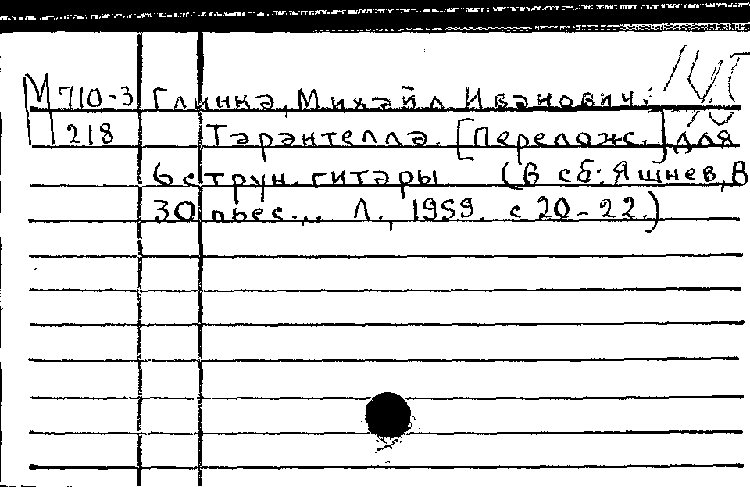 М 710-3 Глинка, Михаил Иванович.
218 Тарантелла. [Перелож.] для
6 струн. гитары (В сб: Яшнев, В
30 пьес... Л., 1959. с 20-22.)